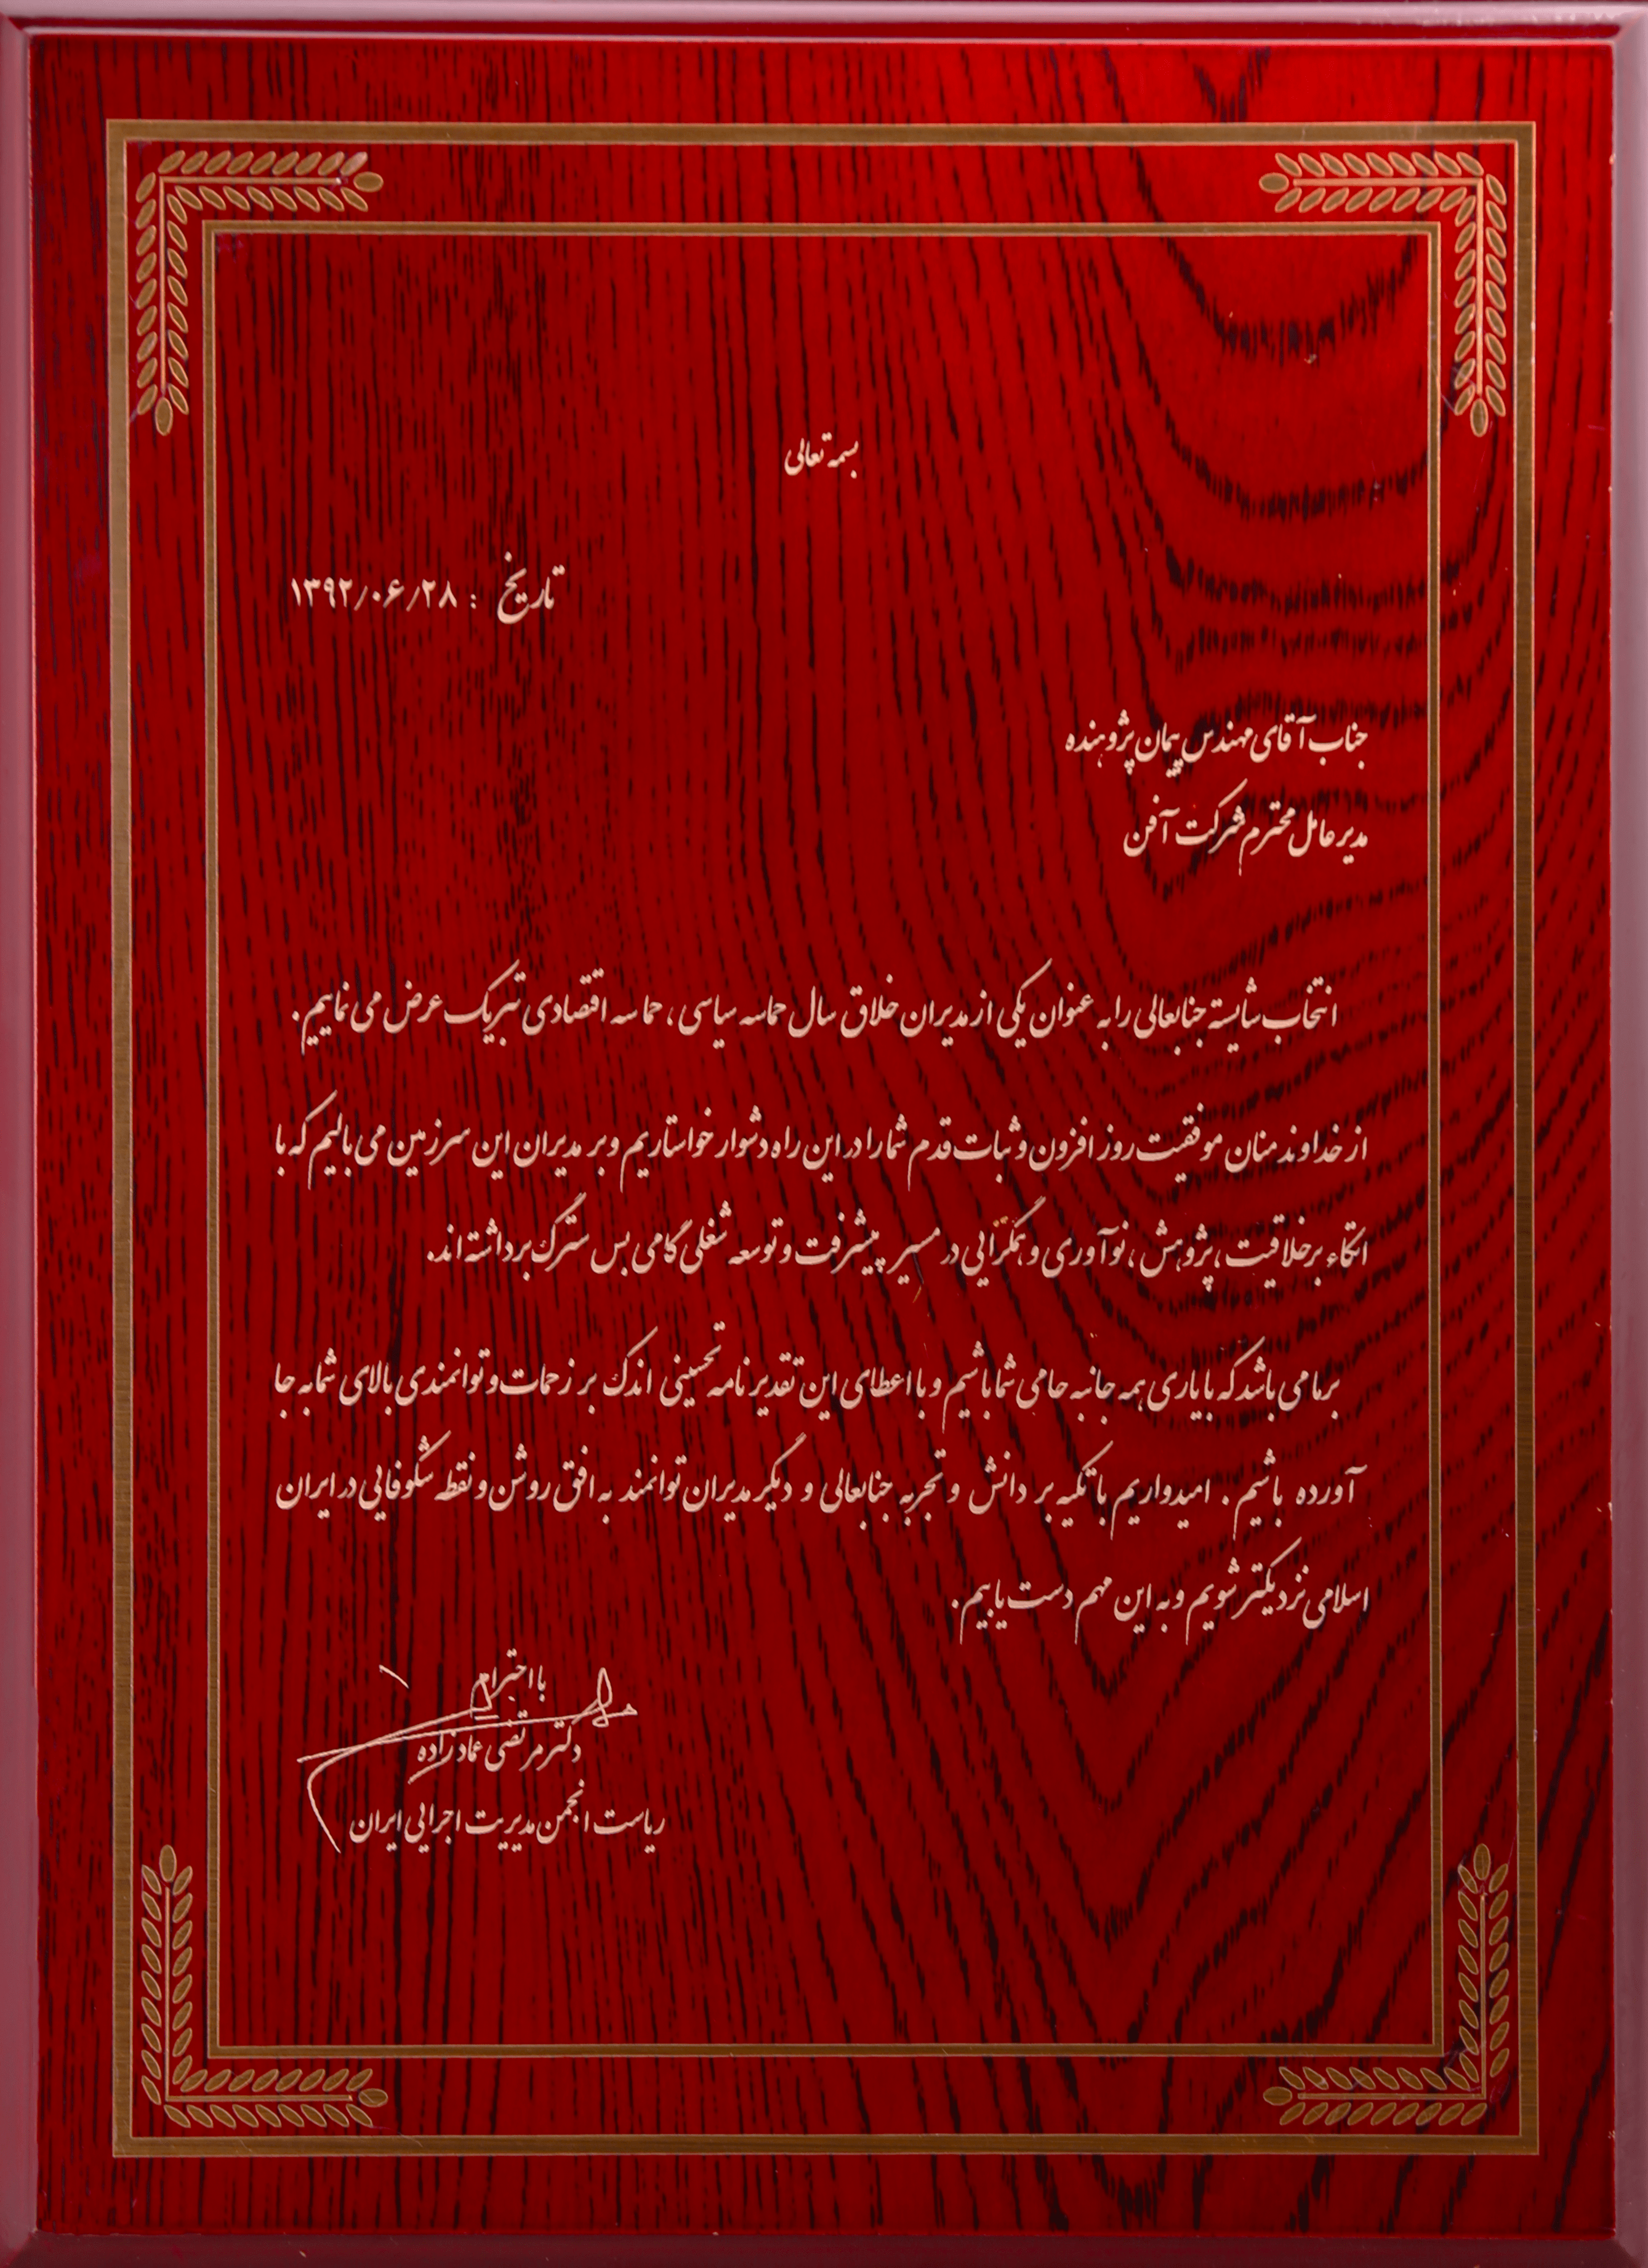 بسمه تعالی
تاریخ : ۱۳۹۲/۰۶/۲۸
جناب آقای مهندس پیمان پژوهنده
مدیر عامل محترم شرکت آفن
انتخاب شایسته جنابعالی را به عنوان یکی از مدیران خلاق سال حماسه سیاسی، حماسه اقتصادی تبریک عرض می نماییم.
از خداوند منان موفقیت روز افزون و ثبات قدم شما را در این راه دشوار خواستاریم و بر مدیران این سرزمین می بالیم که با
اتکاء بر خلاقیت، پژوهش، نوآوری و همگرایی در مسیر پیشرفت و توسعه شغلی گامی بس سترگ برداشته اند.
بر ما می باشد که با یاری همه جانبه حامی شما باشیم و با اعطای این تقدیر نامه تحسینی اندک بر زحمات و توانمندی بالای شما به جا
آورده باشیم. امیدواریم با تکیه بر دانش و تجربه جنابعالی و دیگر مدیران توانمند به افق روشن و نقطه شکوفایی در ایران
اسلامی نزدیکتر شویم و به این مهم دست یابیم.
با احترام
دکتر مرتضی عمادزاده
ریاست انجمن مدیریت اجرایی ایران